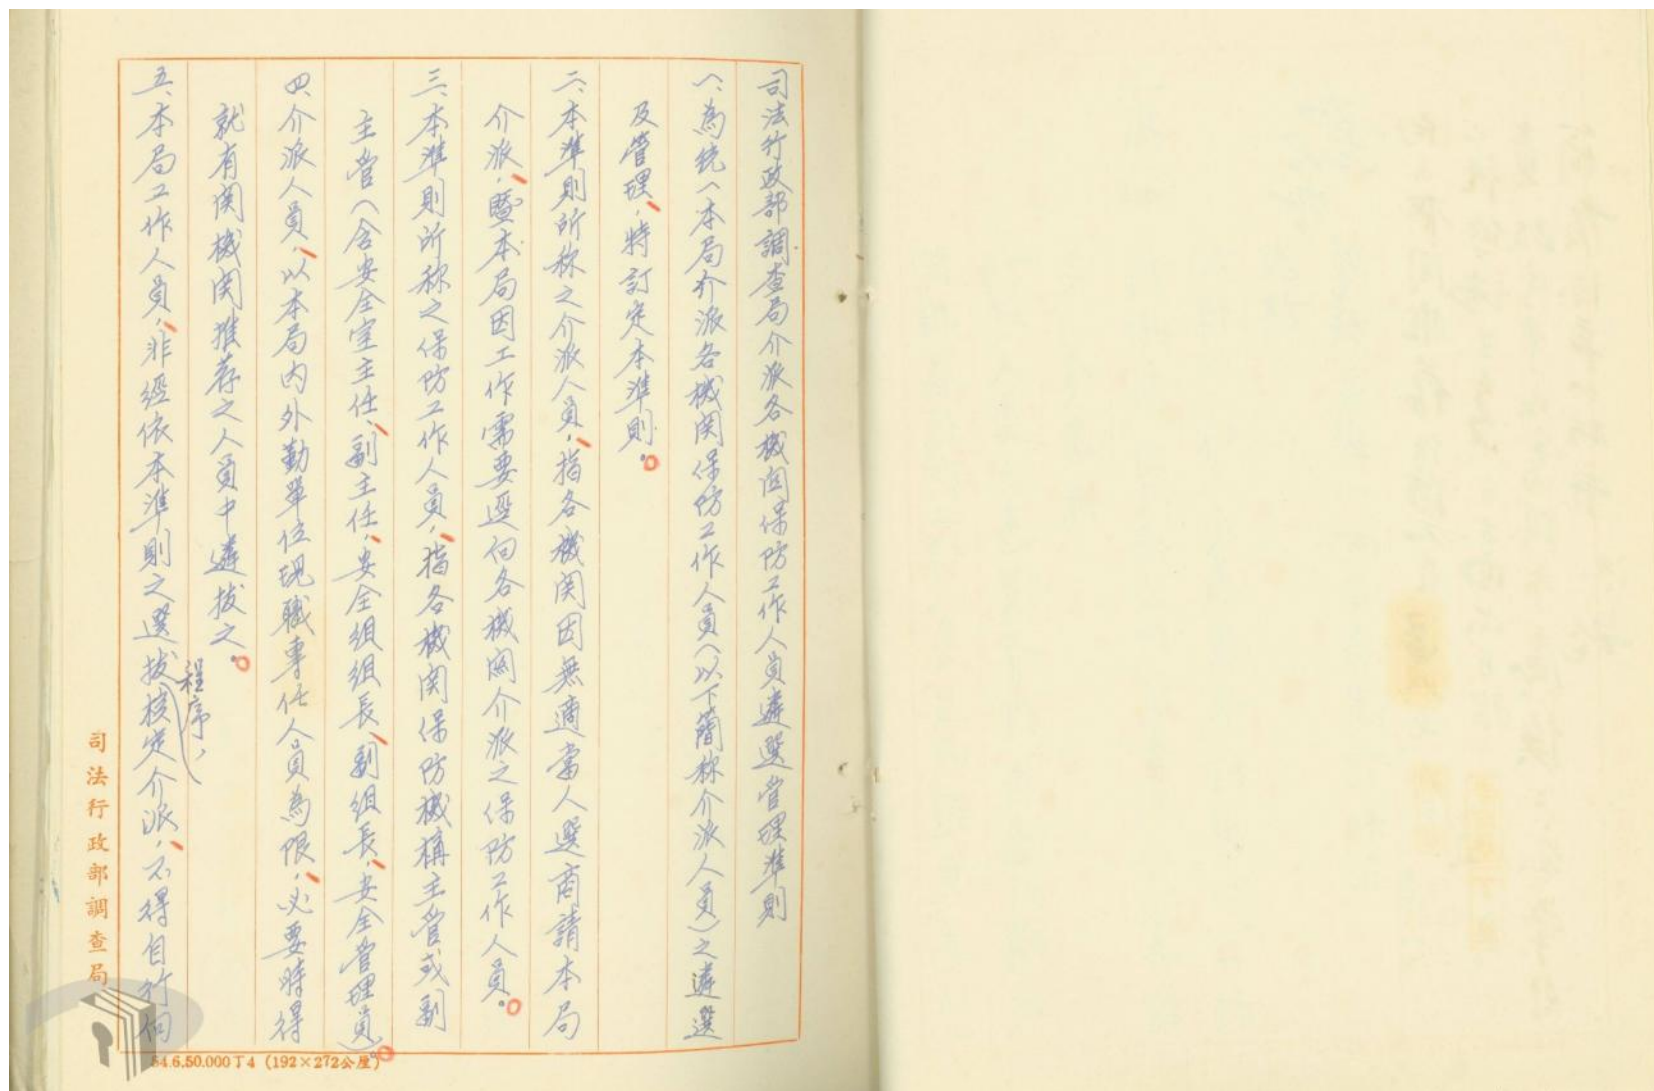 司法行政部調查局介派各機関保防工作人員遴選管理準則
一、為統一本局介派各機関保防工作人員(以下簡称介派人員)之遴選
及管理，特訂定本準則。
二、本準則所称之介派人員，指各機関因無適當人選商請本局
介派，暨本局因工作需要逕向各機関介派之保防工作人員。
三、本準則所称之保防工作人員，指各機関保防機構主管或副
主管(含安全室主任、副主任，安全組組長、副組長，安全管理員)。
四、介派人員，以本局内外勤單位現職專任人員為限，必要時得
就有関機関推荐之人員中遴拔之。
五、本局工作人員，非經依本準則之選拔核定程序，介派，不得自行向
司法行政部調查局
54.6.50.000丁4 (192×272公厘)